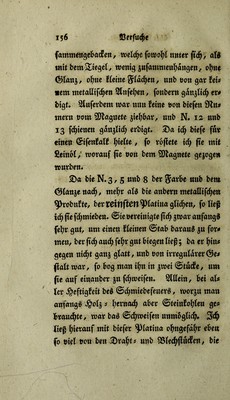 156 Versuche
sammengebacken, welche sowohl unter sich, als
mit dem Tiegel, wenig zusammenhängen, ohne
Glanz, ohne kleine Flächen, und von gar kei-
nem metallischen Ansehen, sondern gänzlich er-
digt. Ausserdem war nun keine von diesen Nu-
mern vom Magnete ziehbar, und N. 12 und
13 schienen gänzlich erdigt. Da ich diese für
einen Eisenkalk hielte, so röstete ich sie mit
Leinöl, worauf sie von dem Magnete gezogen
wurden.
Da die N. 3, 5 und 8 der Farbe und dem
Glanze nach, mehr als die andern metallischen
Produkte, der reinsten Platina glichen, so ließ
ich sie schmieden. Sie vereinigte sich zwar anfangs
sehr gut, um einen kleinen Stab daraus zu for-
men, der sich auch sehr gut biegen ließ; da er hin-
gegen nicht ganz glatt, und von irregulärer Ge-
stalt war, so bog man ihn in zwei Stücke, um
sie auf einander zu schweisen. Allein, bei al-
ler Heftigkeit des Schmiedefeuers, worzu man
anfangs Holz- hernach aber Steinkohlen ge-
brauchte, war das Schweisen unmöglich. Ich
ließ hierauf mit dieser Platina ohngefähr eben
so viel von den Draht- und Blechstücken, die